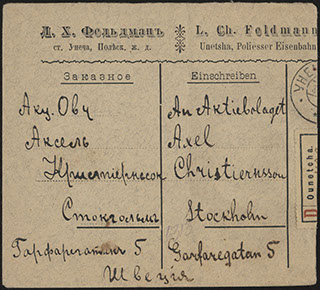 Л. Х. Фельдманъ
ст. Унеча, Полѣсск. ж. д.
L. Ch. Feldmann
Unetsha, Poliesser Eisenbahn
Заказное
Einschreiben
Акц. Обу
Аксель
Христіернсон
Стокгольмъ
Гарфарегатанъ 5
Швеція
An Aktiebolaget
Axel
Christiernsson
Stockholm
Garfaregatan 5
УНЕ
R Ounetcha.